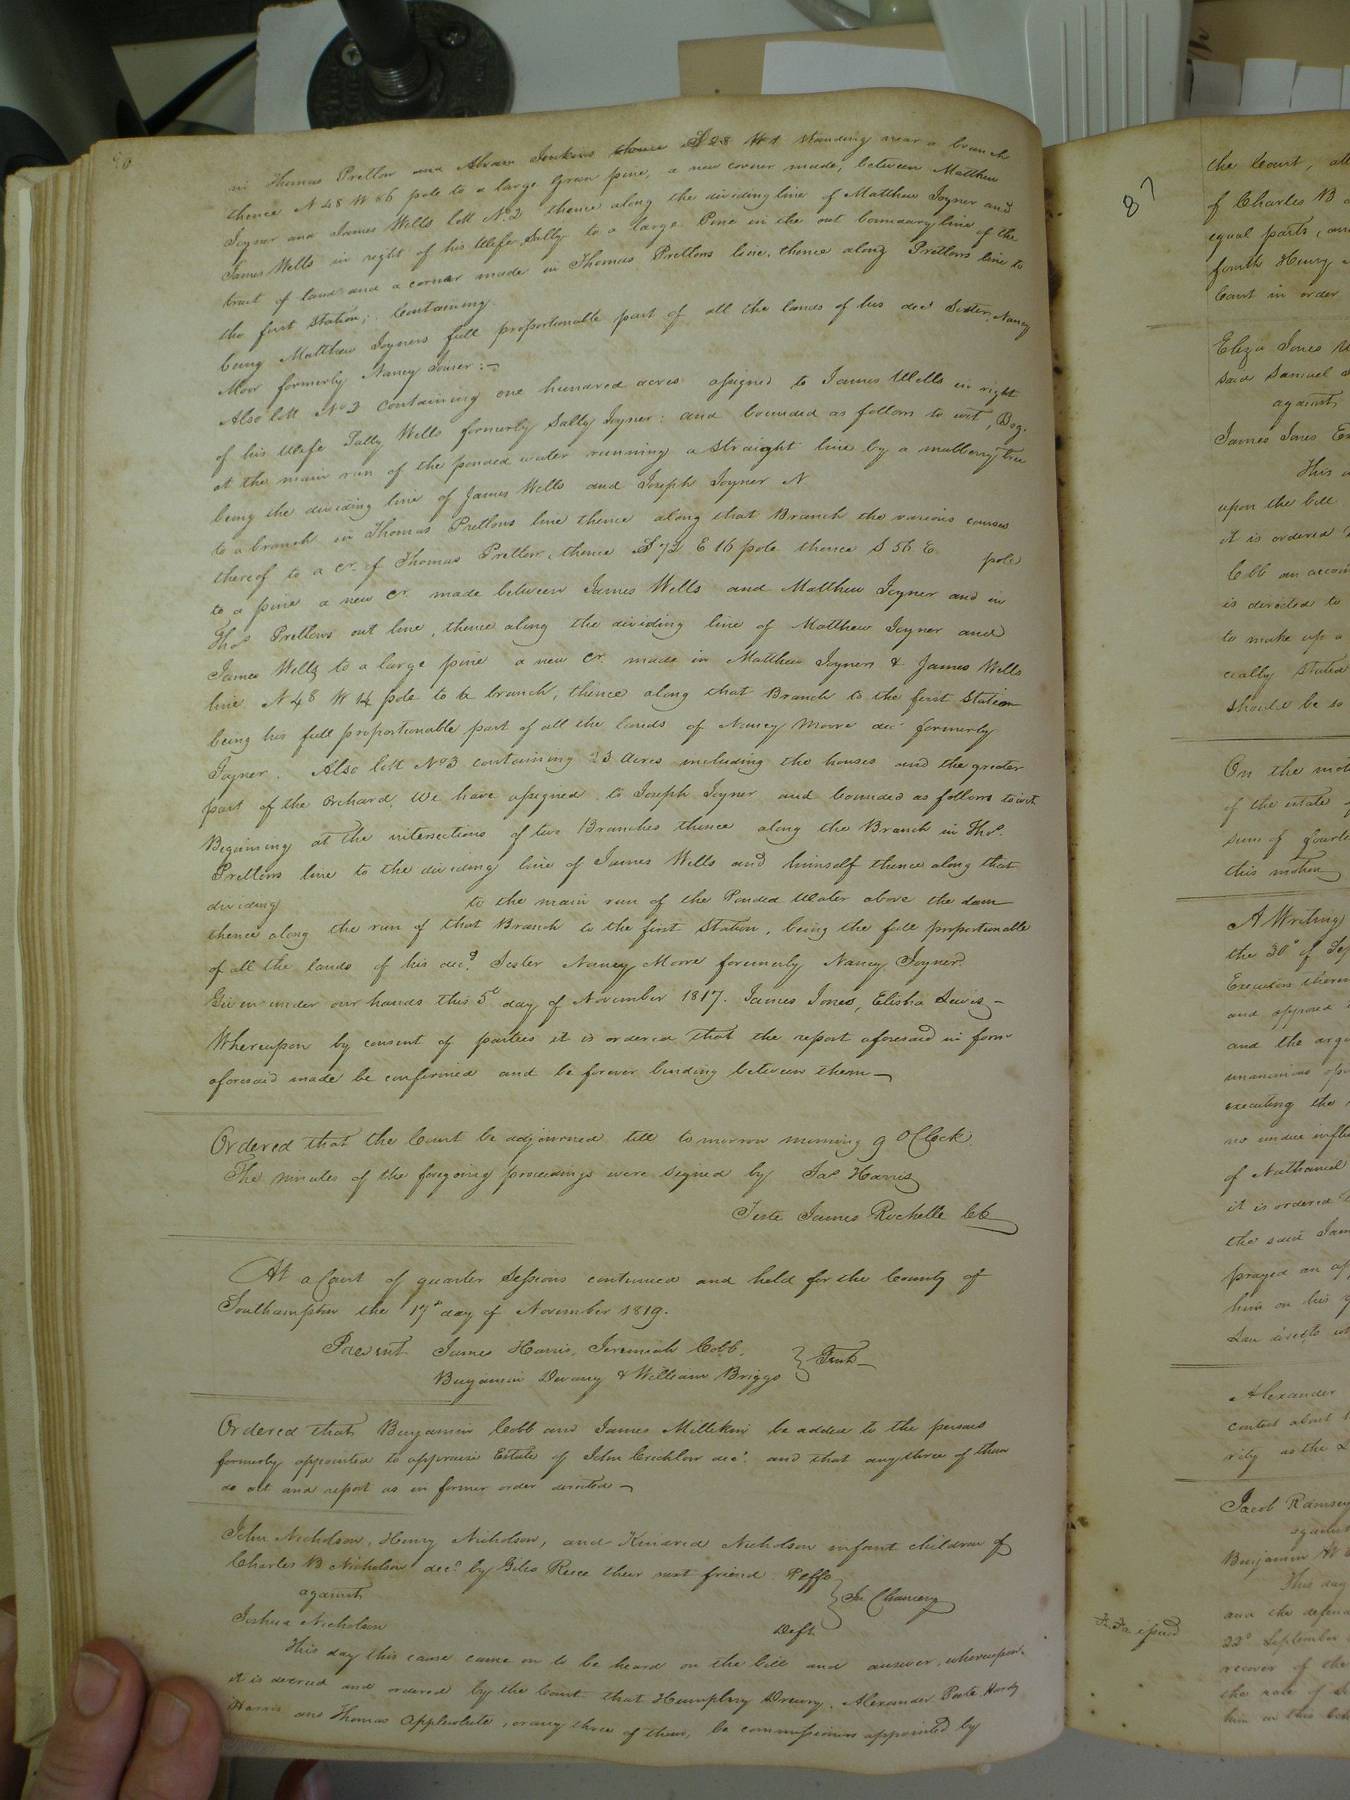 in Thomas Pretlow and Abram Jenkins thence S 28 W 1 standing near a branch
thence N 48 W 86 pole to a large Green pine, a new corner made, between Matthew
Joyner and James Wells lott No 2 thence along the dividing line of Matthew Joyner and
James Wells in right of his Wife Sally to a large Pine in the out boundary line of the
tract of land and a corner made in Thomas Pretlows line, thence along Pretlows line to
the first station; Containing
being Matthew Joyners full proportionable part of all the lands of his decd Sister, Nancy
Moor formerly Nancy Joiner :-
Also lott No 3 Containing one hundred acres assigned to James Wells in right
of his Wife Sally Wells formerly Sally Joyner: and bounded as follows to wit, Beg.
at the main run of the ponded water running a straight line by a mulberry tree
being the dividing line of James Wells and Joseph Joyner N
to a branch in Thomas Pretlows line thence along that Branch the various courses
thereof to a cr. of Thomas Pretlow, thence S 72 E 16 pole thence S 56 E pole
to a pine a new cr. made between James Wells and Matthew Joyner and in
Thos Pretlows out line, thence along the dividing line of Matthew Joyner and
James Wells to a large pine a new cr. made in Matthew Joyners & James Wells
line N 48 W 14 pole to a branch, thence along that Branch to the first Station
being his full proportionable part of all the lands of Nancy Moore decd formerly
Joyner. Also lott No 3 containing 23 Acres including the houses and the greater
part of the Orchard. We have assigned to Joseph Joyner and bounded as follows to wit
Beginning at the intersections of two Branches thence along the Branch in Thos.
Pretlows line to the dividing line of James Wells and himself thence along that
dividing to the main run of the Ponded Water above the dam
thence along the run of that Branch to the first Station, being the full proportionable
of all the lands of his decd Sister Nancy Moore formerly Nancy Joyner.
Given under our hands this 5d day of November 1817. James Jones, Elisha Lewis -
Whereupon by consent of parties it is ordered that the report aforesaid in form
aforesaid made be confirmed and be forever binding between them -
Ordered that the Court be adjourned till tomorrow morning 9 OClock.
The minutes of the foregoing proceedings were signed by Jas Harris
Teste James Rochelle CC
At a Court of quarter Sessions continued and held for the County of
Southampton the 17th day of November 1819.
Present James Harris, Jeremiah Cobb,
Benjamin Devany & William Briggs } Gent
Ordered that Benjamin Cobb and James Millikin be added to the persons
formerly appointed to appraise Estate of John Crichlow decd. and that any three of them
do act and report as in former order directed -
John Nicholson, Henry Nicholson, and Kindred Nicholson infant children of
Charles B Nicholson decd by Giles Reese their next friend Plffs
against } In Chancery
Joshua Nicholson Deft
This day this cause came on to be heard on the bill and answer, whereupon.
it is decreed and ordered by the Court that Humphry Drewry, Alexander Peete, Hardy
Harris and Thomas Applewhite, or any three of them, be commissioners appointed by
87
the Court, 
of Charles B
equal parts, 
fourth Henry
Court in order
Eliza Jones
said Samuel
against
James Jones
This
upon the bill
it is ordered
an
is directed to
to make up a
cially stated
should be so
On the
of the estate
sum of
this motion
A Writing
the 30th of
Executors
and
and the
unanimous
executing the
no undue
of Nathaniel
it is ordered
the said
prayed an
him on his
Alexander
contest about
rity as the
Jacob Ramsey
against
Benjamin W
This day
and the
Fi Fa issued
22d September
recover of the
the rate of
him in this